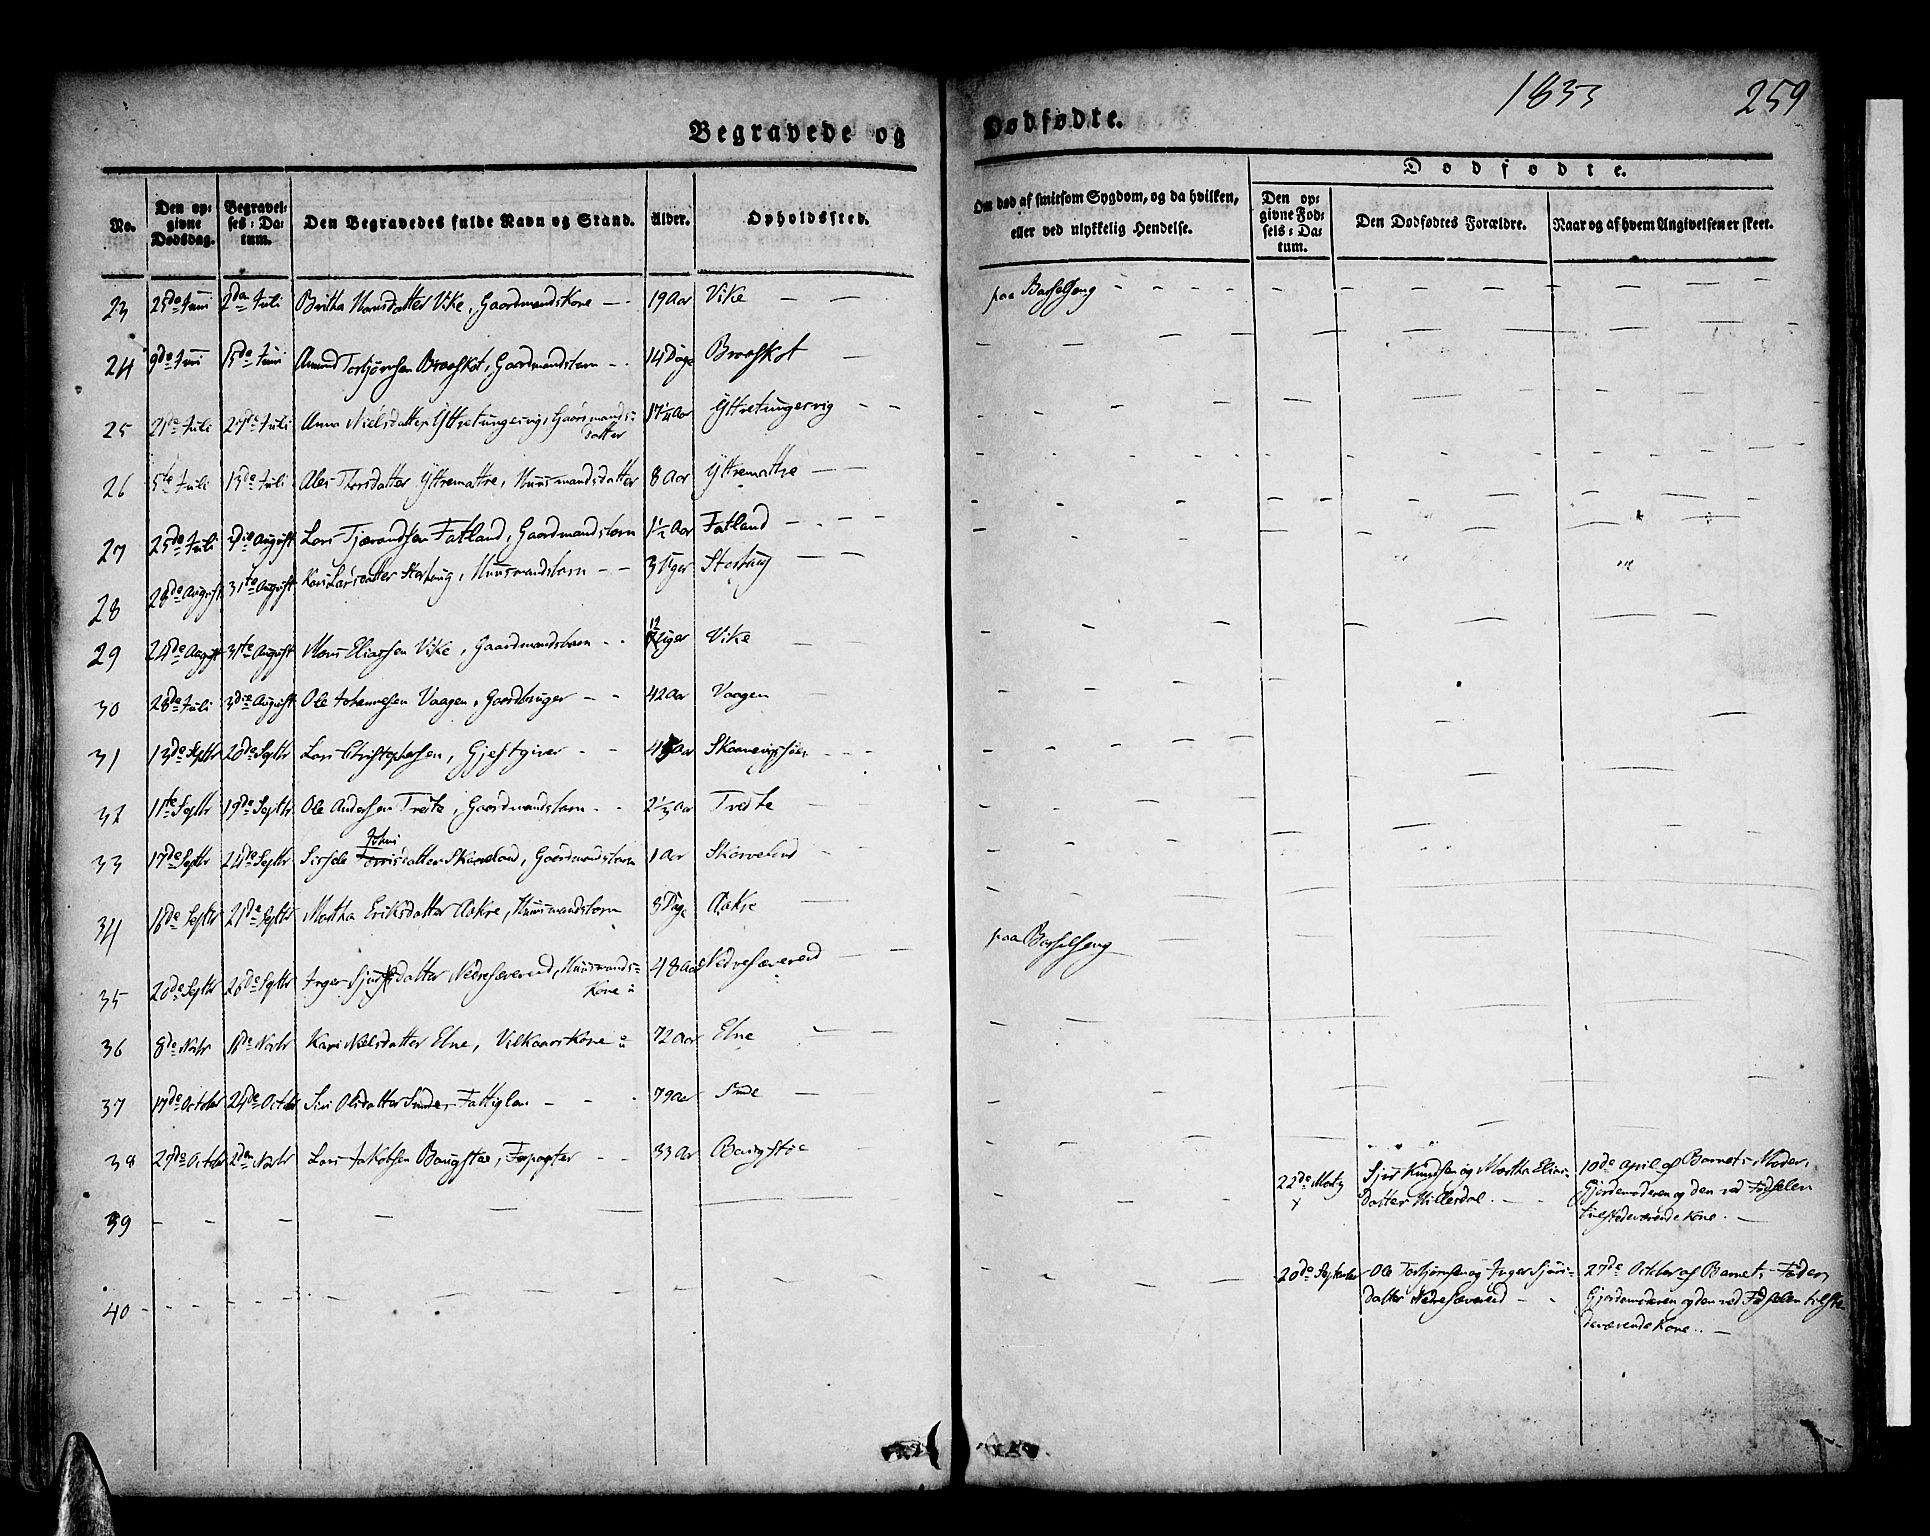 1833 259
Begravede og Dødfødte.
No. Den opgivne Dødsdag. Begravelses-Datum. Den Begravedes fulde Navn og Stand. Alder. Opholdssted. Om død af smitsom Sygdom, og da hvilken, eller ved ulykkelig Hendelse.
Dødfødte.
Den opgivne Fødsels-Datum. Den Dødfødtes Forældre. Naar og af hvem Angivelsen er skeet.
23 25de Juni 2den Juli Britha Monsdatter Vike, Gaardmandskone 19 Aar Vike paa Barselseng
24 9de Juni 15de Juni Amund Torbjørnsen Braaskot, Gaardmandsbarn 14 Dage Braaskot
25 21de Juli 27de Juli Anna Nielsdatter Yttretungesvig, Gaardmands-
datter 17 1/4 Aar Yttretungesvig
26 5te Juli 13de Juli Datter Yttremattre, Huusmandsdatter 8 Aar Yttremattre
27 25de Juli 3die August Lars Tjærandsen Fatland, Gaardmandsbarn 1 1/2 Aar Fatland
28 28de August 31te August Kari Larsdatter Storhaug, Huusmandsbarn 3 Uger Storhaug
29 24de August 31te August Mons Eliassen Vike, Gaardmandsbarn 12 Uger Vike
30 28de Juli 3die August Ole Johannesen Vaagen, Gaardbruger 42 Aar Vaagen
31 13de Septbr 20de Septbr Lars Christophersen, Gjestgiver Aar Skaanevigsøen
32 11te Septbr 19de Septbr Ole Andersen Tredte, Gaardmandsbarn 2 1/3 Aar Tredte
Johns
33 17de Septbr 24de Septbr Sirsele datter Skarveland, Gaardmandsbarn 1 Aar Skarveland
34 18de Septbr 21de Septbr Martha Eriksdatter Aakre, Huusmandsbarn 3 Dage Aakre
35 20de Septbr 26de Septbr Inger Sjursdatter Nedresævereid, Huusmands-
Kone 48 Aar Nedresævereid paa Barselseng
36 8de Novbr Novbr Kari Nielsdatter Elne, Vilkaarskone 72 Aar Elne
37 17de October 24de October Siri Olsdatter Sunde, Fattiglem 79 Aar Sunde
38 27de October 2den Novbr Lars Jakobsen Baugstøe, Forpagter 33 Aar Baugstøe
39 22de Marty Sjur Knudsen og Martha Elias-
datter Hillesdal 10de April af Barnets Moder,
Gjordemoderen og den ved Fødselen
tilstedeværende Kone.
40 20de September Ole Torbjørnsen og Inger Sjurs-
datter Nedresævereid 27de October af Barnets Fader,
Gjordemoderen og den ved Fødselen tilste-
deværende Kone.